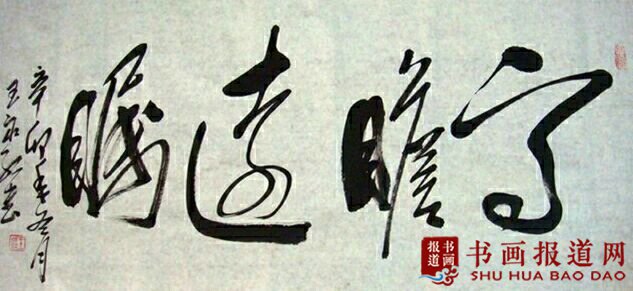 高瞻遠矚
辛卯年冬月
王
书画报道
书画报道网
SHU HUA BAO DAO